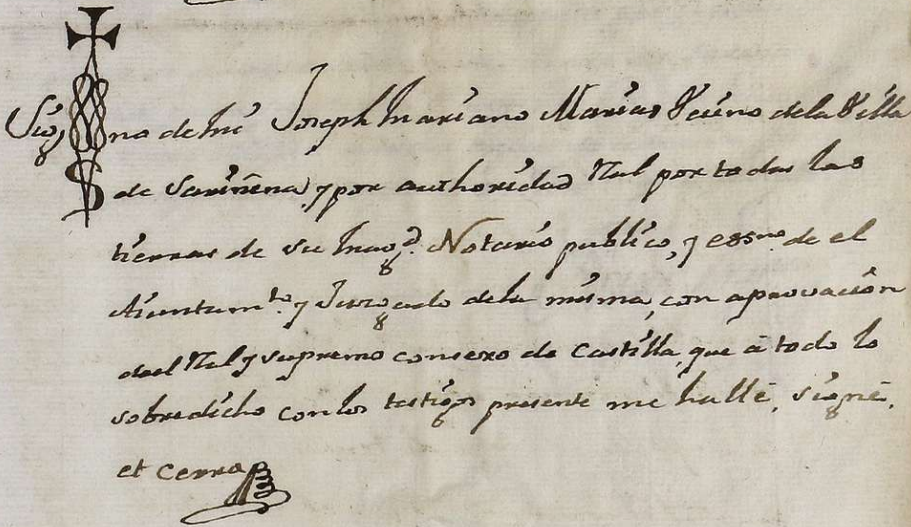 Sig no de Mi Joseph Mariano Marias Vecino dela Villa
de Sariñena, y por authoridad Rl. por todas las
tierras de su Magd. Notario publico, y essno. de el
Aiuntamto. y Juzgado dela misma, con aprovación
del Rl. y supremo consexo de Castilla, que â todo lo
sobredicho con los testigos presente me hallê, signê,
et cerrê